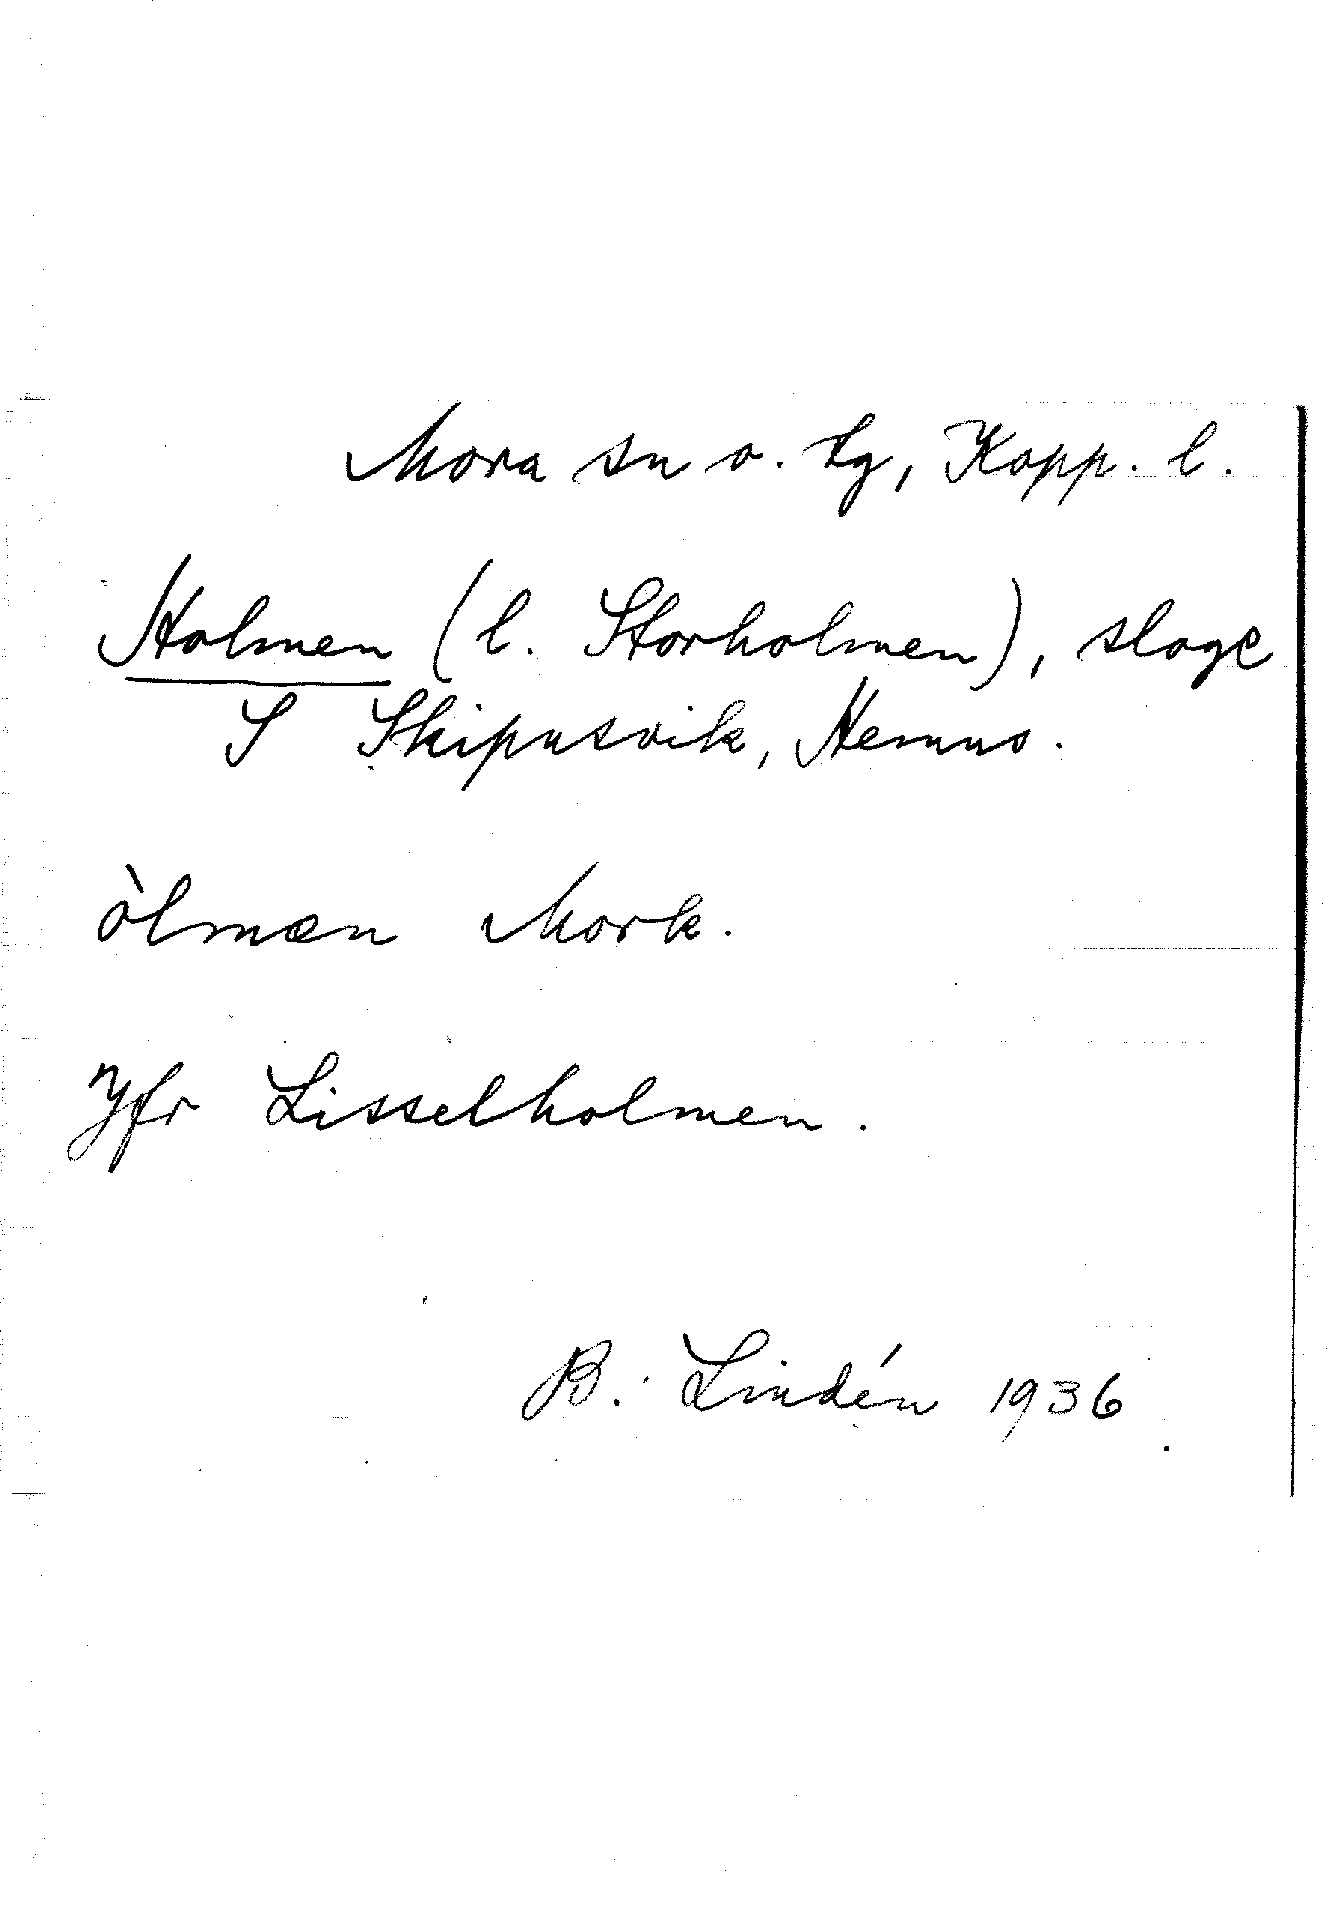 Mora sn o. tg, Kopp. l.
Holmen (l. Storholmen), sloge
S Skipnsvik, Hemus.
òlmæn Mork.
Jfr Lisselholmen.
B. Lindén 1936